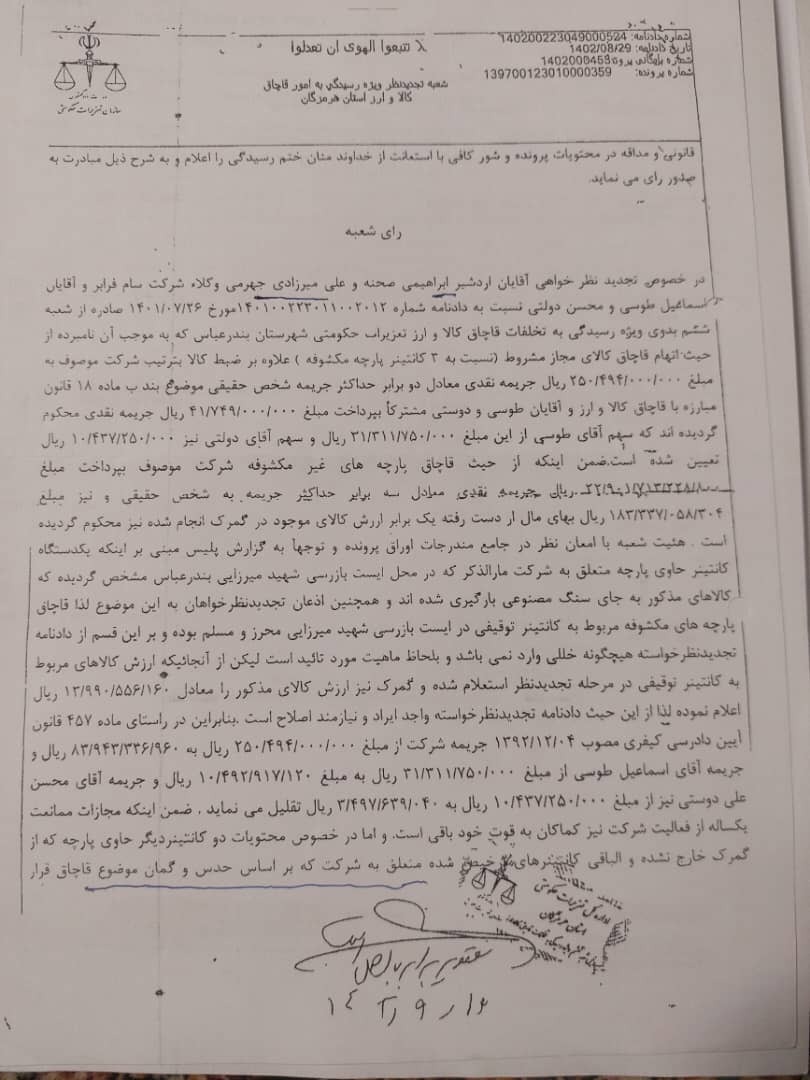 شماره دادنامه: 140200223049000524
تاریخ دادنامه: 1402/08/29
شماره بایگانی پرونده: 1402000453
شماره پرونده: 139700123010000359
لا تتبعوا الهوی ان تعدلوا
شعبه تجدیدنظر ویژه رسیدگی به امور قاچاق
کالا و ارز استان هرمزگان
سازمان تعزیرات حکومتی
قانونی و مداقه در محتویات پرونده و شور کافی با استعانت از خداوند منان ختم رسیدگی را اعلام و به شرح ذیل مبادرت به
صدور رای می نماید.
رای شعبه
در خصوص تجدید نظر خواهی آقایان اردشیر ابراهیمی صحنه و علی میرزادی جهرمی وکلاء شرکت سام فرابر و آقایان
اسماعیل طوسی و محسن دولتی نسبت به دادنامه شماره ۱۴۰۱۰۰۲۲۳۰۱۱۰۰۲۰۱۲مورخ ۱۴۰۱/۰۷/۲۶ صادره از شعبه
ششم بدوی ویژه رسیدگی به تخلفات قاچاق کالا و ارز تعزیرات حکومتی شهرستان بندرعباس که به موجب آن نامبرده از
حیث اتهام قاچاق کالای مجاز مشروط (نسبت به ۳ کانتینر پارچه مکشوفه ) علاوه بر ضبط کالا بترتیب شرکت موصوف به
مبلغ ۲۵۰/۴۹۴/۰۰۰/۰۰۰ ریال جریمه نقدی معادل دو برابر حداکثر جریمه شخص حقیقی موضوع بند ب ماده ۱۸ قانون
مبارزه با قاچاق کالا و ارز و آقایان طوسی و دوستی مشترکاً بپرداخت مبلغ ۴۱/۷۴۹/۰۰۰/۰۰۰ ریال جریمه نقدی محکوم
گردیده اند که سهم آقای طوسی از این مبلغ ۳۱/۳۱۱/۷۵۰/۰۰۰ ریال و سهم آقای دولتی نیز ۱۰/۴۳۷/۲۵۰/۰۰۰ ریال
تعیین شده است.ضمن اینکه از حیث قاچاق پارچه های غیر مکشوفه شرکت موصوف بپرداخت مبلغ
ریال جریمه نقدی معادل سه برابر حداکثر جریمه به شخص حقیقی و نیز مبلغ
۱۸۳/۳۳۷/۰۵۸/۳۰۴ ریال بهای مال از دست رفته یک برابر ارزش کالای موجود در گمرک انجام شده نیز محکوم گردیده
است . هئیت شعبه با امعان نظر در جامع مندرجات اوراق پرونده و توجهاً به گزارش پلیس مبنی بر اینکه یکدستگاه
کانتینر حاوی پارچه متعلق به شرکت مارالذکر که در محل ایست بازرسی شهید میرزایی بندرعباس مشخص گردیده که
کالاهای مذکور به جای سنگ مصنوعی بارگیری شده اند و همچنین اذعان تجدیدنظرخواهان به این موضوع لذا قاچاق
پارچه های مکشوفه مربوط به کانتینر توقیفی در ایست بازرسی شهید میرزایی محرز و مسلم بوده و بر این قسم از دادنامه
تجدیدنظرخواسته هیچگونه خللی وارد نمی باشد و بلحاظ ماهیت مورد تائید است لیکن از آنجائیکه ارزش کالاهای مربوط
به کانتینر توقیفی در مرحله تجدیدنظر استعلام شده و گمرک نیز ارزش کالای مذکور را معادل ۱۳/۹۹۰/۵۵۶/۱۶۰ ریال
اعلام نموده لذا از این حیث دادنامه تجدیدنظرخواسته واجد ایراد و نیازمند اصلاح است .بنابراین در راستای ماده ۴۵۷ قانون
آیین دادرسی کیفری مصوب ۱۳۹۲/۱۲/۰۴ جریمه شرکت از مبلغ ۲۵۰/۴۹۴/۰۰۰/۰۰۰ ریال به ۸۳/۹۴۳/۳۳۶/۹۶۰ ریال و
جریمه آقای اسماعیل طوسی از مبلغ ۳۱/۳۱۱/۷۵۰/۰۰۰ ریال به مبلغ ۱۰/۴۹۲/۹۱۷/۱۲۰ ریال و جریمه آقای محسن
علی دوستی نیز از مبلغ ۱۰/۴۳۷/۲۵۰/۰۰۰ ریال به ۳/۴۹۷/۶۳۹/۰۴۰ ریال تقلیل می نماید . ضمن اینکه مجازات ممانعت
یکساله از فعالیت شرکت نیز کماکان به قوت خود باقی است. و اما در خصوص محتویات دو کانتینردیگر حاوی پارچه که از
گمرک خارج نشده و الباقی کانتینرهای ترخیص شده متعلق به شرکت که بر اساس حدس و گمان موضوع قاچاق قرار
اداره کل تعزیرات حکومتی
استان هرمزگان
تصویر برابر با اصل است